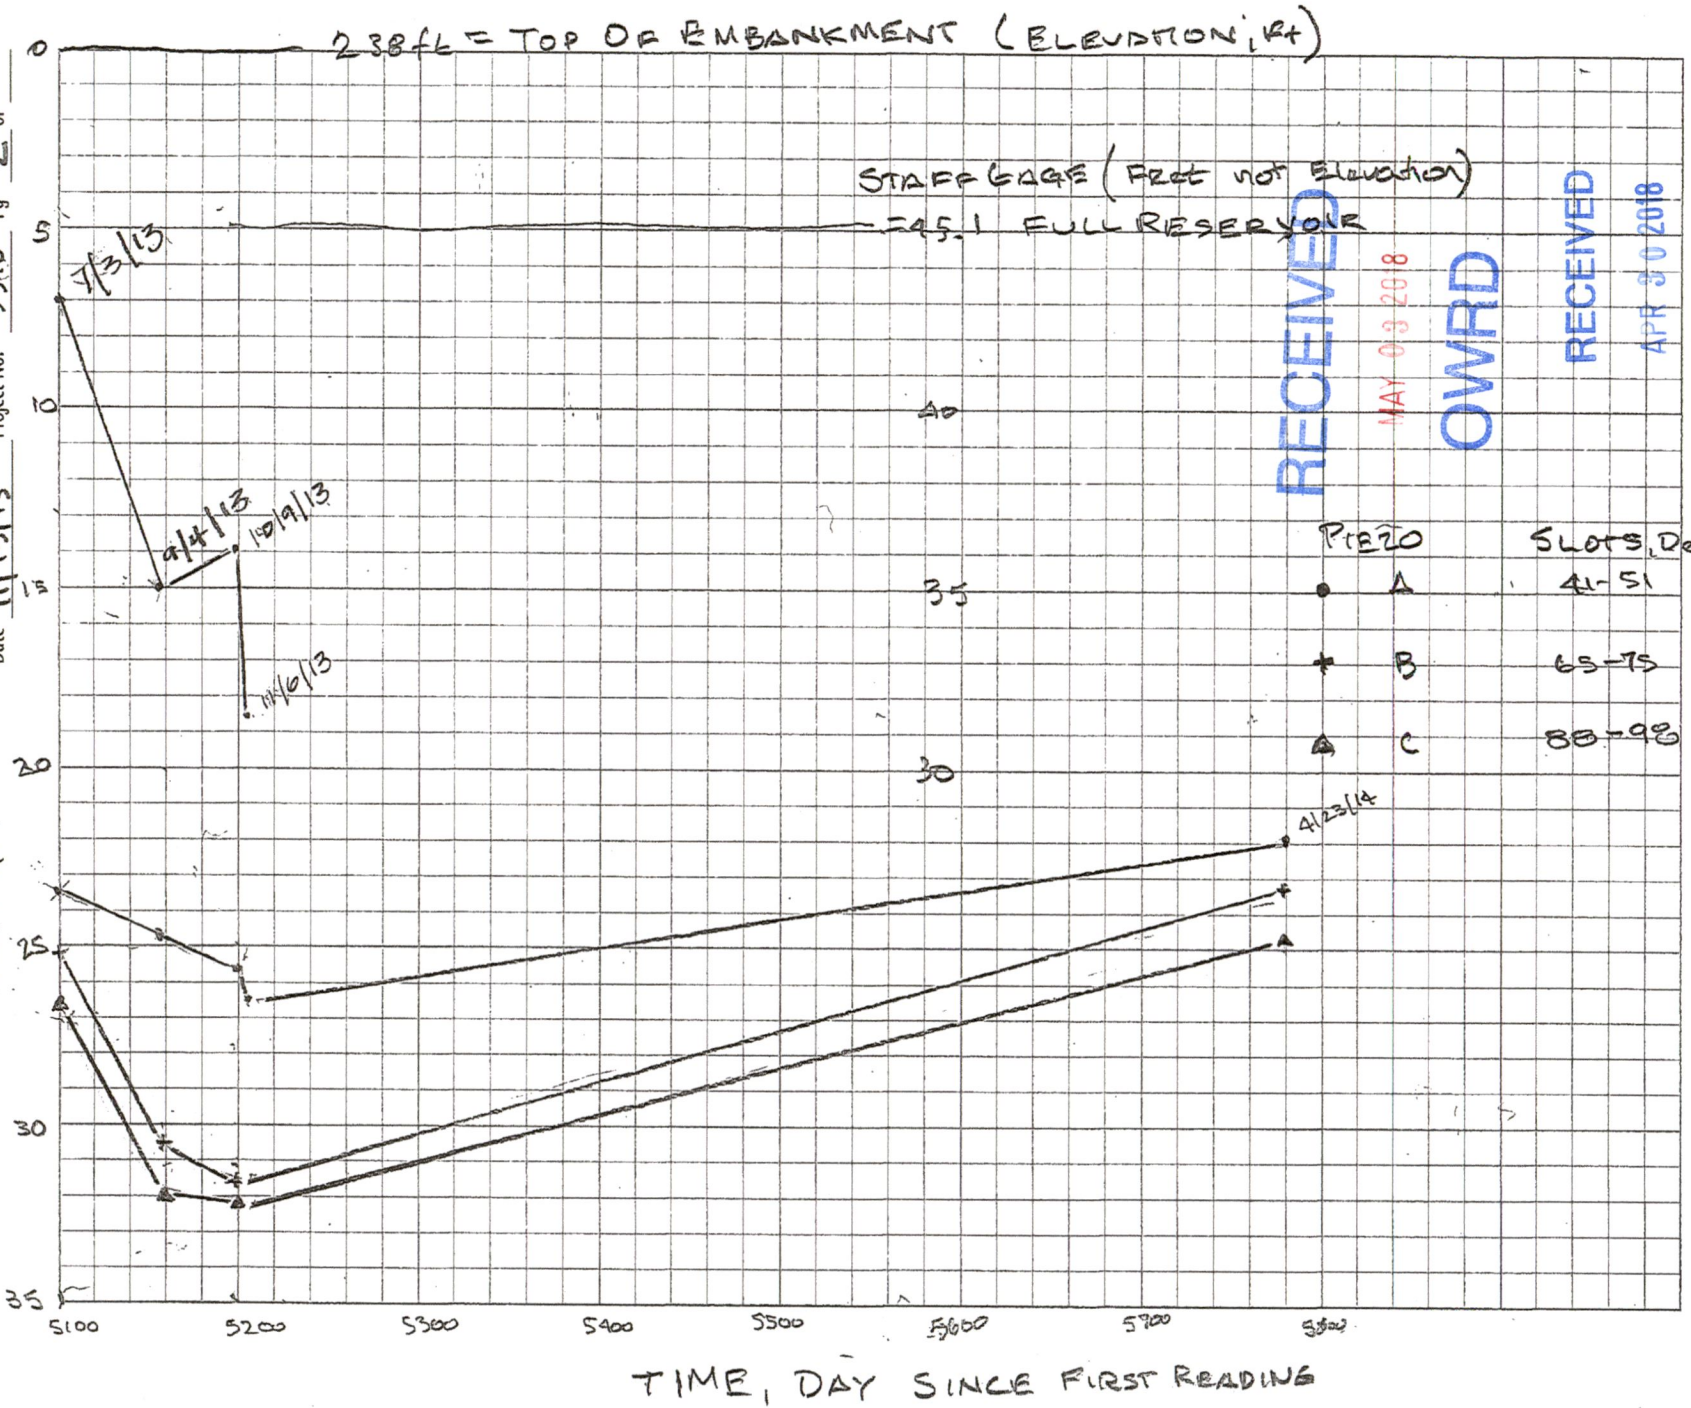 238ft = TOP OF EMBANKMENT (ELEVATION, Ft)
0
STAFF GAGE (Feet not Elevation)
5
=45.1 FULL RESERVOIR
7/3/13
RECEIVED
MAY 03 2018
OWRD
RECEIVED
APR 30 2018
10
40
9/4/13
10/9/13
PIEZO SLOTS, De
15
35
• A 41-51
11/6/13
+ B 65-75
▲ C 88-98
20
30
4/23/14
25
30
35
5100 5200 5300 5400 5500 5600 5700 5800
TIME, DAY SINCE FIRST READING
Date
Project No.
Pg 2 of